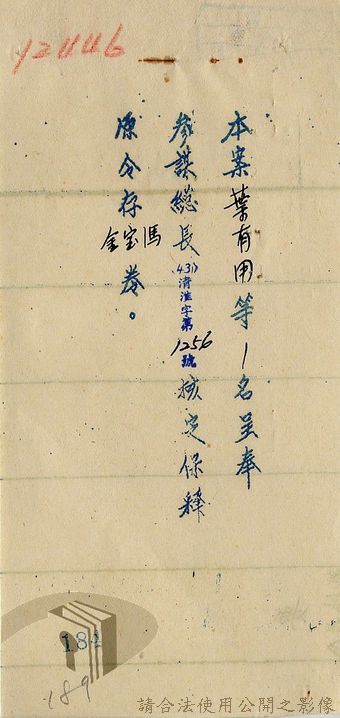 42446
本案葉有用等1名呈奉
參謀總長(43)清澄字第1256號核定保釋
原令存馮宝全卷。
184
189
請合法使用公開之影像